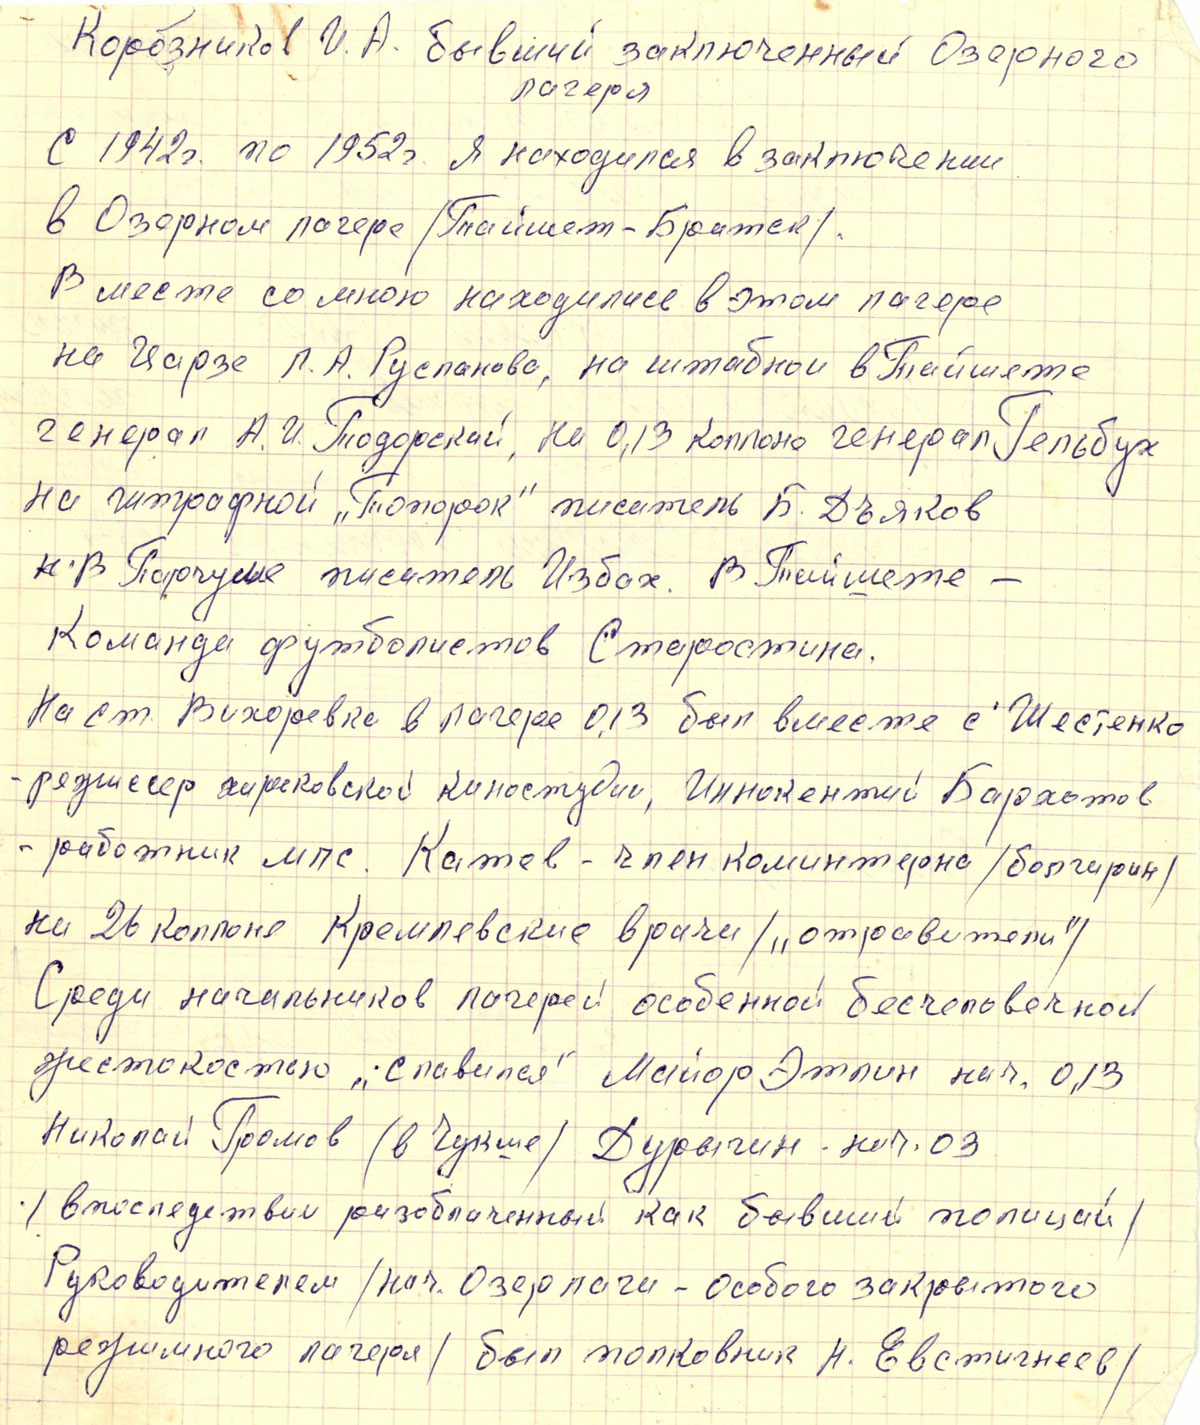 Коробзников И. А. бывший заключенный Озерного
лагеря
С 1942г. по 1952г. я находился в заключении
в Озерном лагере /Тайшет-Братск/.
Вместе со мною находились в этом лагере
на Чарзе Л. А. Русланова, на штабной в Тайшете
генерал А. И. Тодорский, на 0,13 коллоне генерал Гельбух
на штрафной „Топорок" писатель Б. Дъяков
н. В Парчуме писатель Избах. В Тайшете -
Команда футболистов Старостина.
На ст. Вихоревка в лагере 0,13 был вместе с Шестенко
- режиссер харковской киностудии, Иннокентий Бархатов
- работник МПС. Катев - член коминтерна /болгарин/
на 26 коллоне Кремлевские врачи /„отравители"/
Среди начальников лагерей особенной бесчеловечной
жестокостью „славился" Майор Этлин нач. 0,13
Николай Громов (в Чукше/ Дурычин - нач. 03
/ впоследствии разоблаченный как бывший полицай/
Руководителем /нач. Озерлага - особого закрытого
режимного лагеря/ был полковник Н. Евстигнеев/